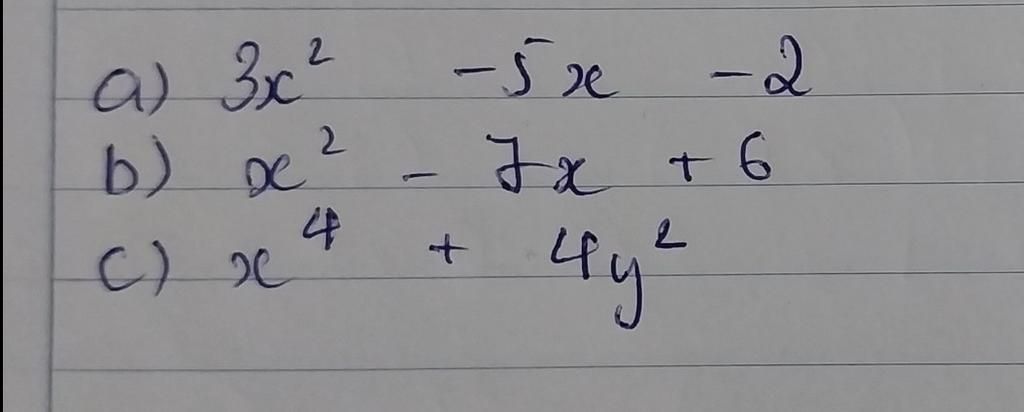 a) 3x² -5x -2
b) x² - 7x + 6
c) x⁴ + 4y²